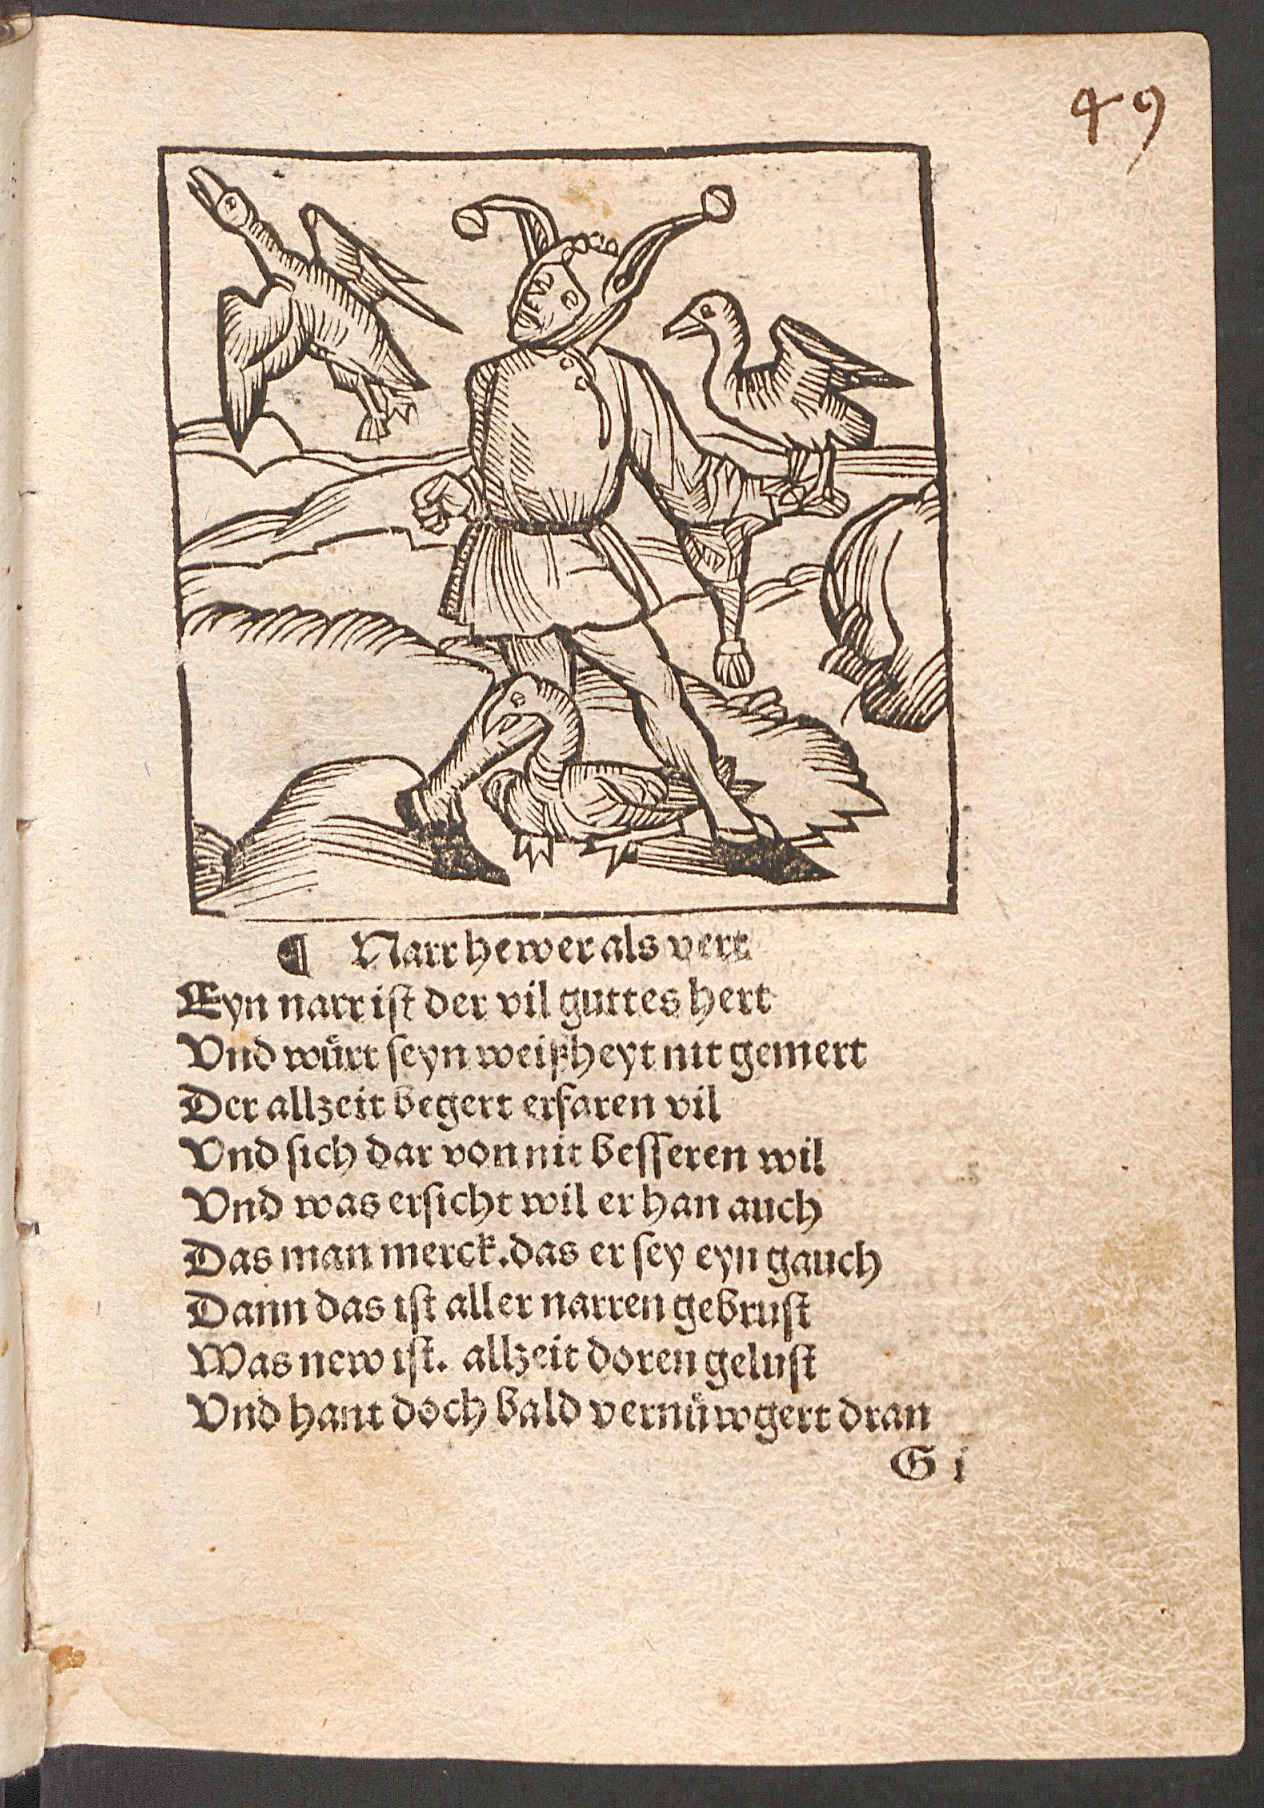 49
¶ Narr hewer als vert
Eyn narr ist der vil guttes hert
Vnd würt seyn weißheyt nit gemert
Der allzeit begert erfaren vil
Vnd sich dar von nit besseren wil
Vnd was ersicht wil er han auch
Das man merck. das er sey eyn gauch
Dann das ist aller narren gebrust
Was new ist. allzeit doren gelust
Vnd hant doch bald vernüwgert dran
G i